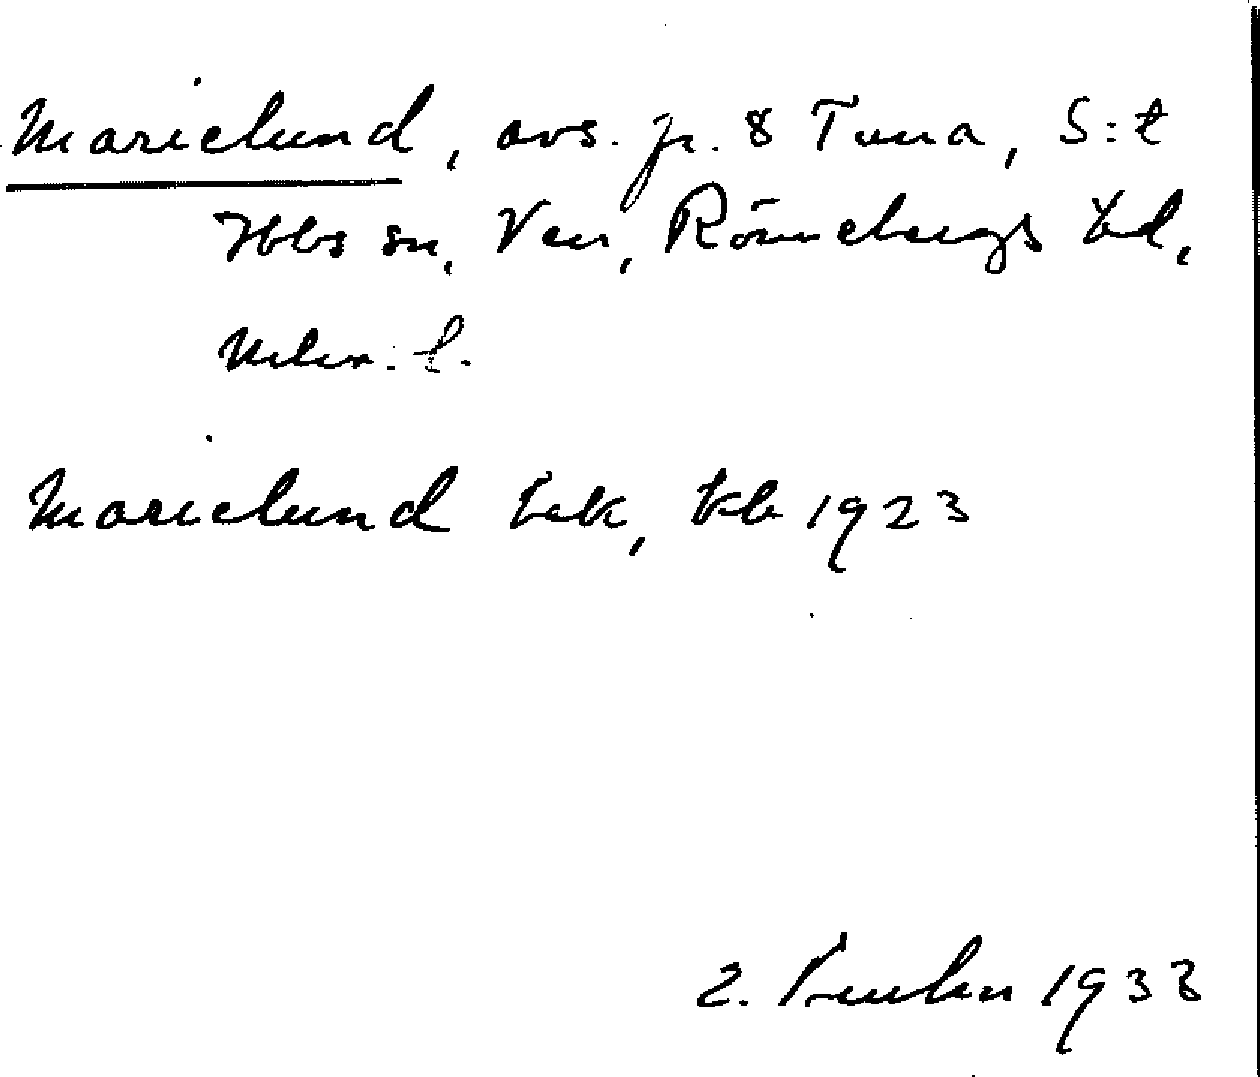 Marielund, avs. fr. 8 Tuna, S:t
Ibbs sn, Ven, Rönnebergs hd,
Malm. l.
Marielund Eek, kb 1923
2. 1933